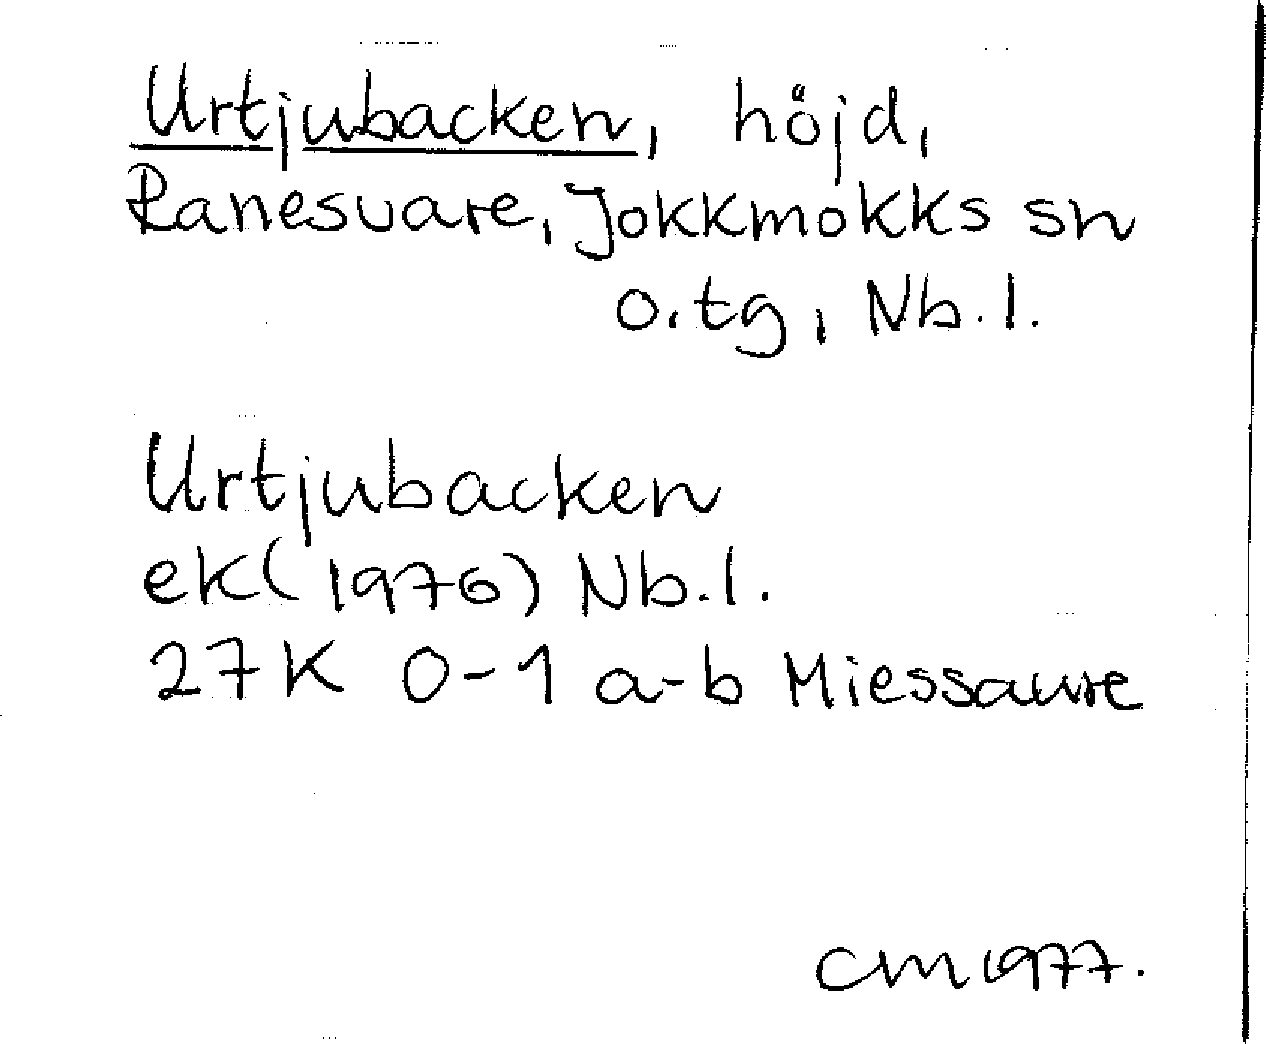 Urtjubacken, höjd,
Ranesvare, Jokkmokks sn
o.tg, Nb.l.
Urtjubacken
ek(1976) Nb.l.
27K 0-1 a-b Miessaure
CM 1977.